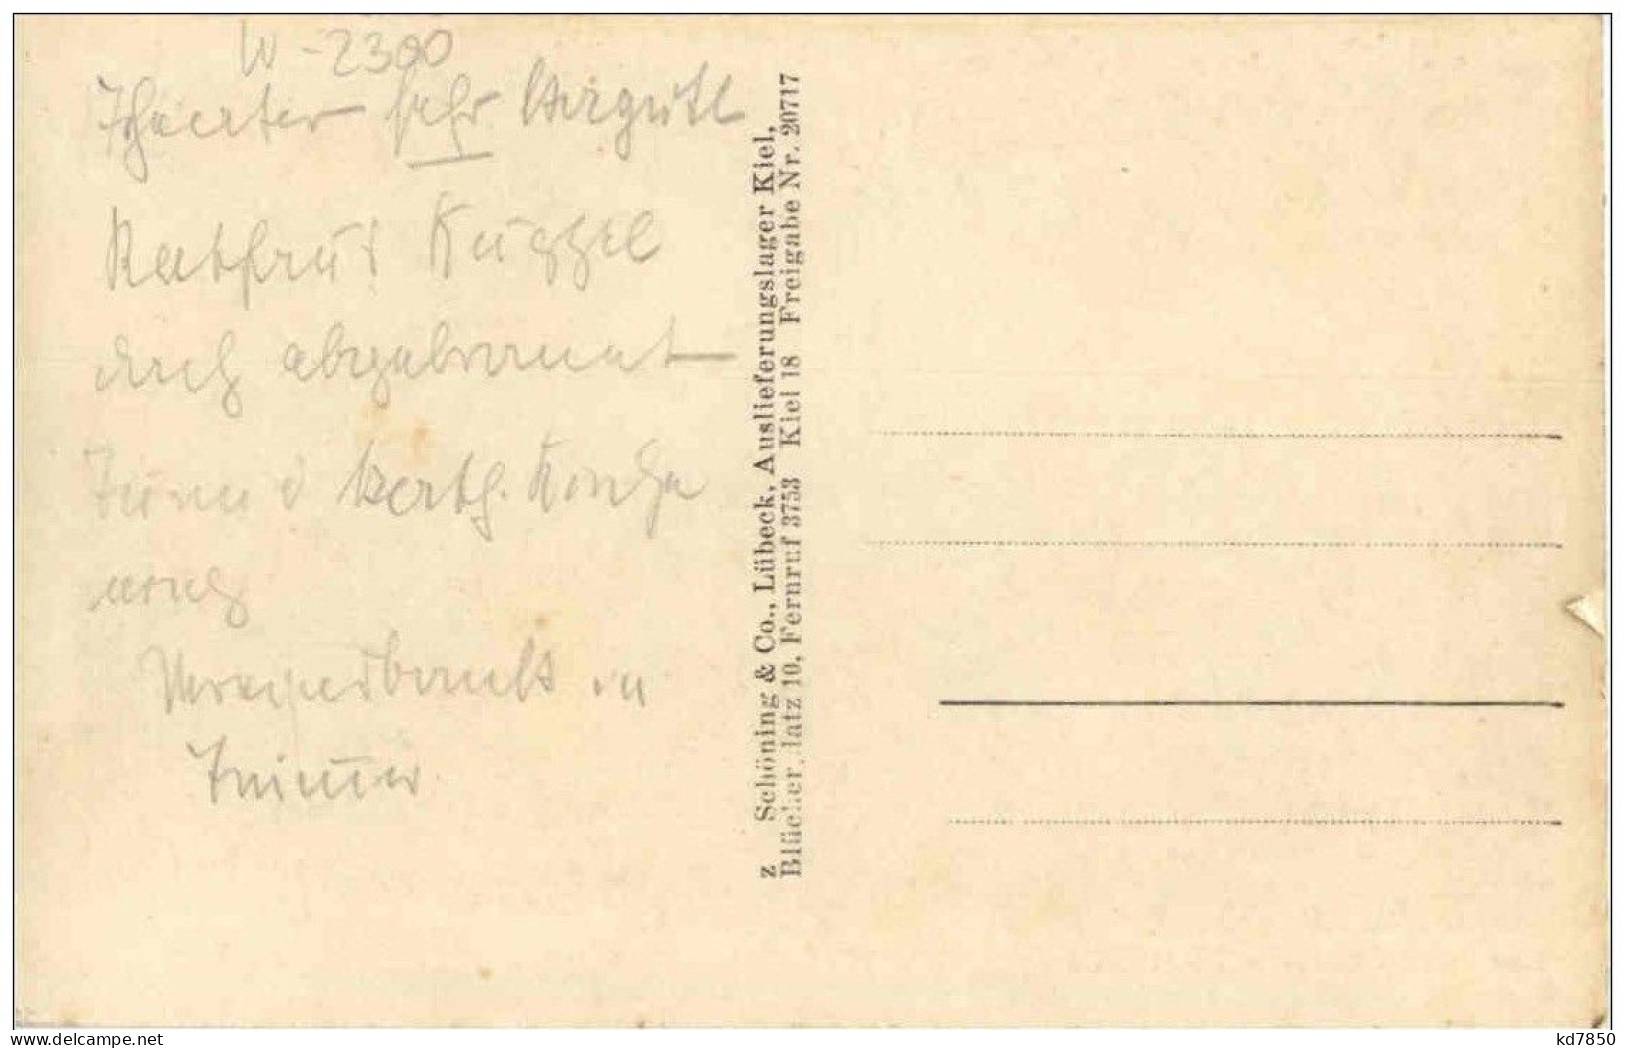 W-2300
Theater sehr
Rathaus Kuppel
auch abgebrannt
Turm d kath. Kirche
auch
in
Schöning & Co., Lübeck, Auslieferungslager Kiel,
z Blücherplatz 10, Fernruf 3753 Kiel 18 Freigabe Nr. 20717
kd7850